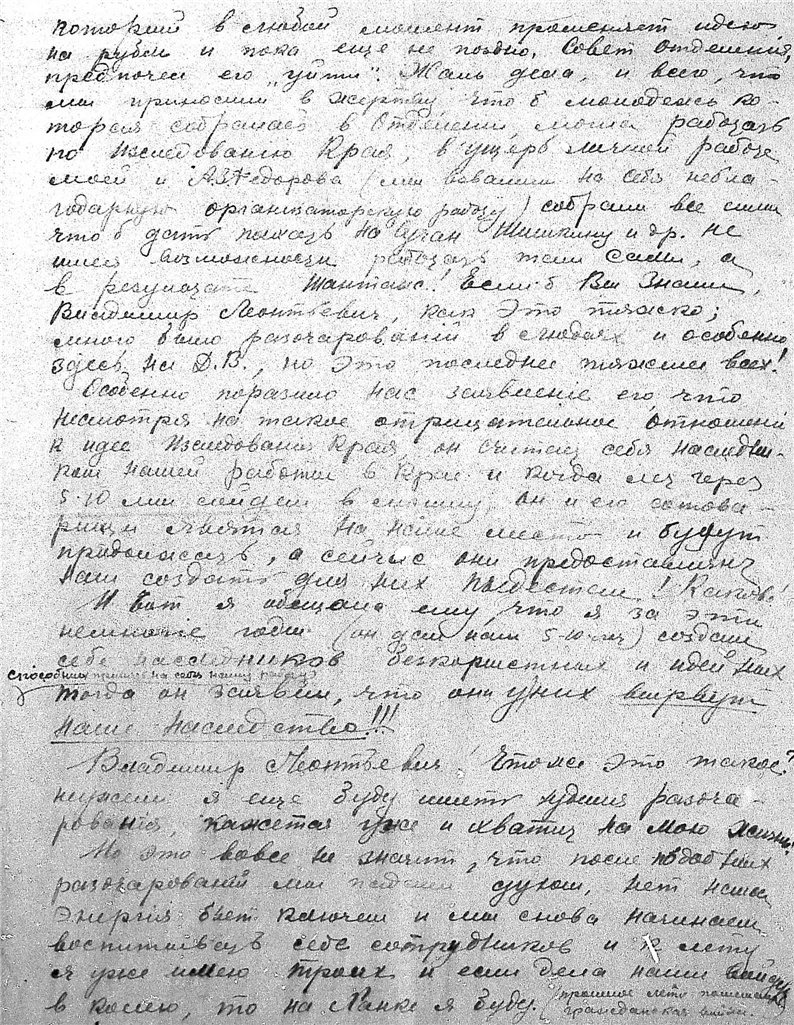 который в любой момент променяет идею
на рубли и пока еще не поздно, Совет отделения,
предпочел его „уйти“. Жаль дела, и всего, что
мы приносили в жертву что б молодежь ко-
торая собралась в Отделении, могла работать
по изследованию Края, в ущерб личной работе
моей и А.З.Федорова (мы взвалили на себя небла-
годарную организаторскую работу) собрали все силы
что б дать поехать на Шишкину и др. не
имея возможности работать там сами, а
в результате Шантаж! Если б Вы знали,
Владимир Леонтьевич, как это тяжко;
много было разочарований в людях и особенно
здесь на Д.В., но это последнее тяжелее всех!
Особенно поразило нас заявление его, что
несмотря на такое отрицательное отношение
к идее изследования Края, он считает себя наследни-
ком нашей работы в Крае и когда мы через
5-10 лет сойдем в могилу, он и его това-
рищи явятся на наше место и будут
продолжать, а сейчас они предоставляют
нам создать для них пьедестал! Каково!
И вот я обещала ему, что я за эти
немногие годы (он дал нам 5-10 лет) создам
себе наследников безкорыстных и идейных
способных принять на себя нашу работу
тогда он заявил, что они у них вырвут
наше наследство!!!
Владимир Леонтьевич! Что же это такое?
неужели я еще буду иметь худшия разоча-
рования, кажется уже и хватит на мою жизнь!
Но это вовсе не значит, что после подобных
разочарований мы падаем духом, нет наша
энергия бьет ключем и мы снова начинаем
воспитывать себе сотрудников и к лету
я уже имею троих и если дела наши войдут
в колею, то на Ханке я буду. (прошлое лето помешала
гражданская война.